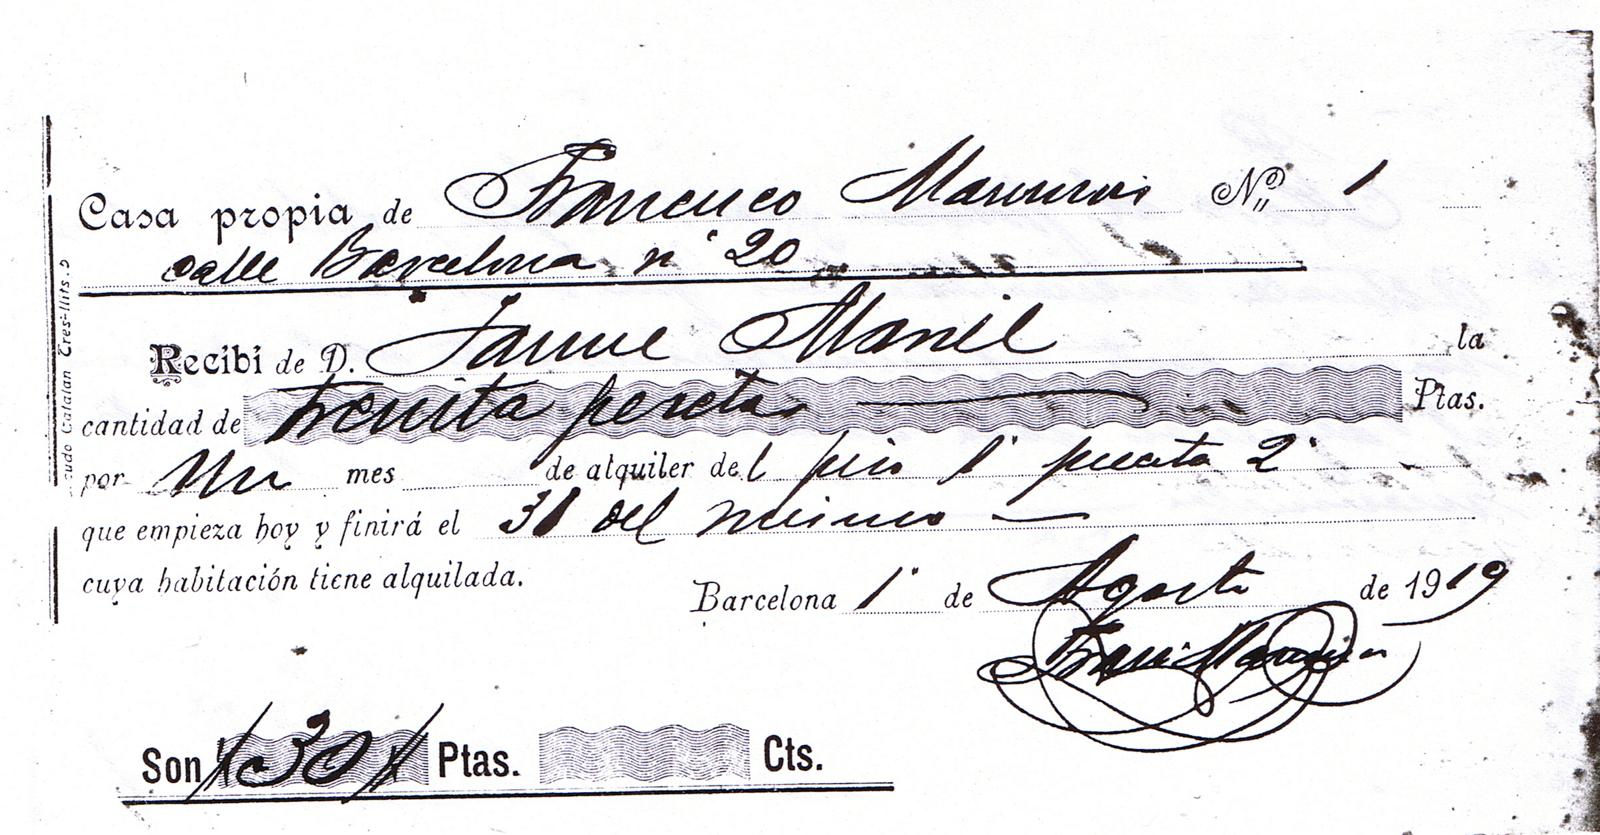 Casa propia de Francisco Nº 1
calle Barcelona nº 20
Recibí de D. Jaume la
cantidad de Trenta pesetas Ptas.
por Un mes de alquiler del piso 1º puerta 2ª
que empieza hoy y finirá el 31 del mismo
cuya habitación tiene alquilada.
Barcelona 1º de Agosto de 1919
Son 30 Ptas. Cts.
Catalán Tres-llits. 5